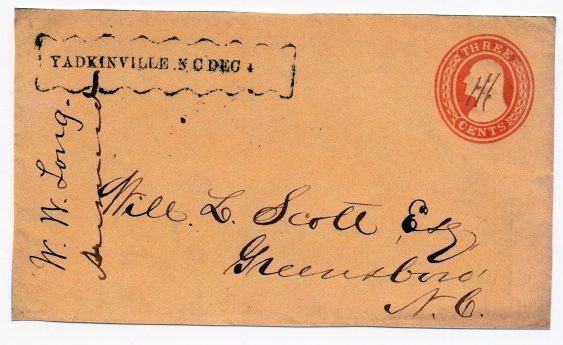 YADKINVILLE. N C DEC 4
THREE
CENTS
W. W. Long.
Answered
Will. L. Scott, Esq
Greensboro'
N. C.